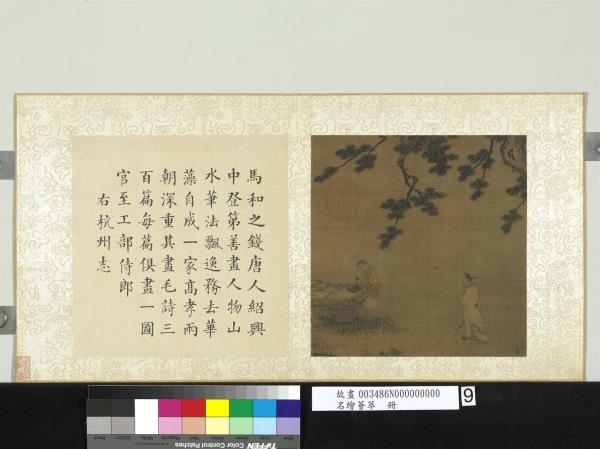 馬和之錢唐人紹興
中登第善畫人物山
水筆法飄逸務去華
藻自成一家高孝兩
朝深重其畫毛詩三
百篇每篇俱畫一圖
官至工部侍郎
右杭州志
故畫 003486N000000000
名繪薈萃 冊
9
TIFFEN Color Control Patches